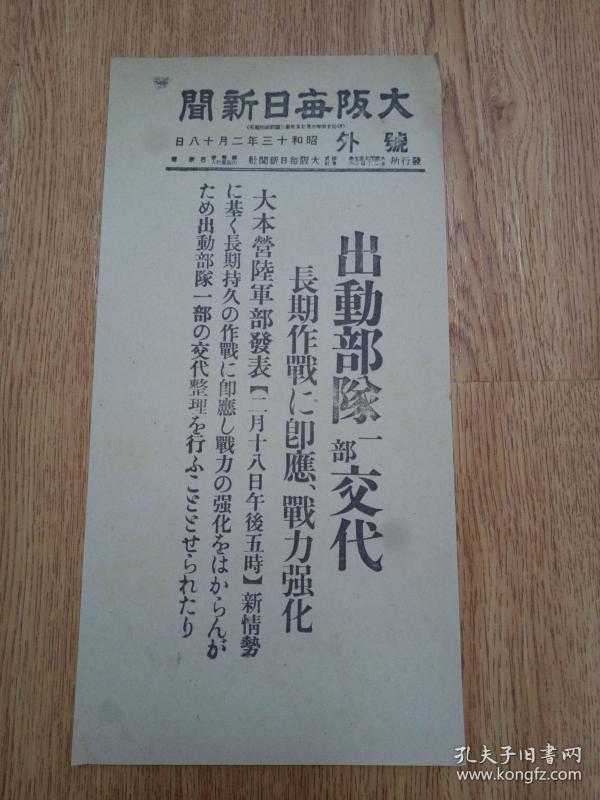 大阪每日新聞
號外
昭和十三年二月十八日
發行所 大阪每日新聞社
出動部隊一部交代
長期作戰に卽應、戰力强化
大本營陸軍部發表【二月十八日午後五時】新情勢
に基く長期持久の作戰に卽應し戰力の强化をはからんが
ため出動部隊一部の交代整理を行ふこととせられたり
孔夫子旧书网
www.kongfz.com